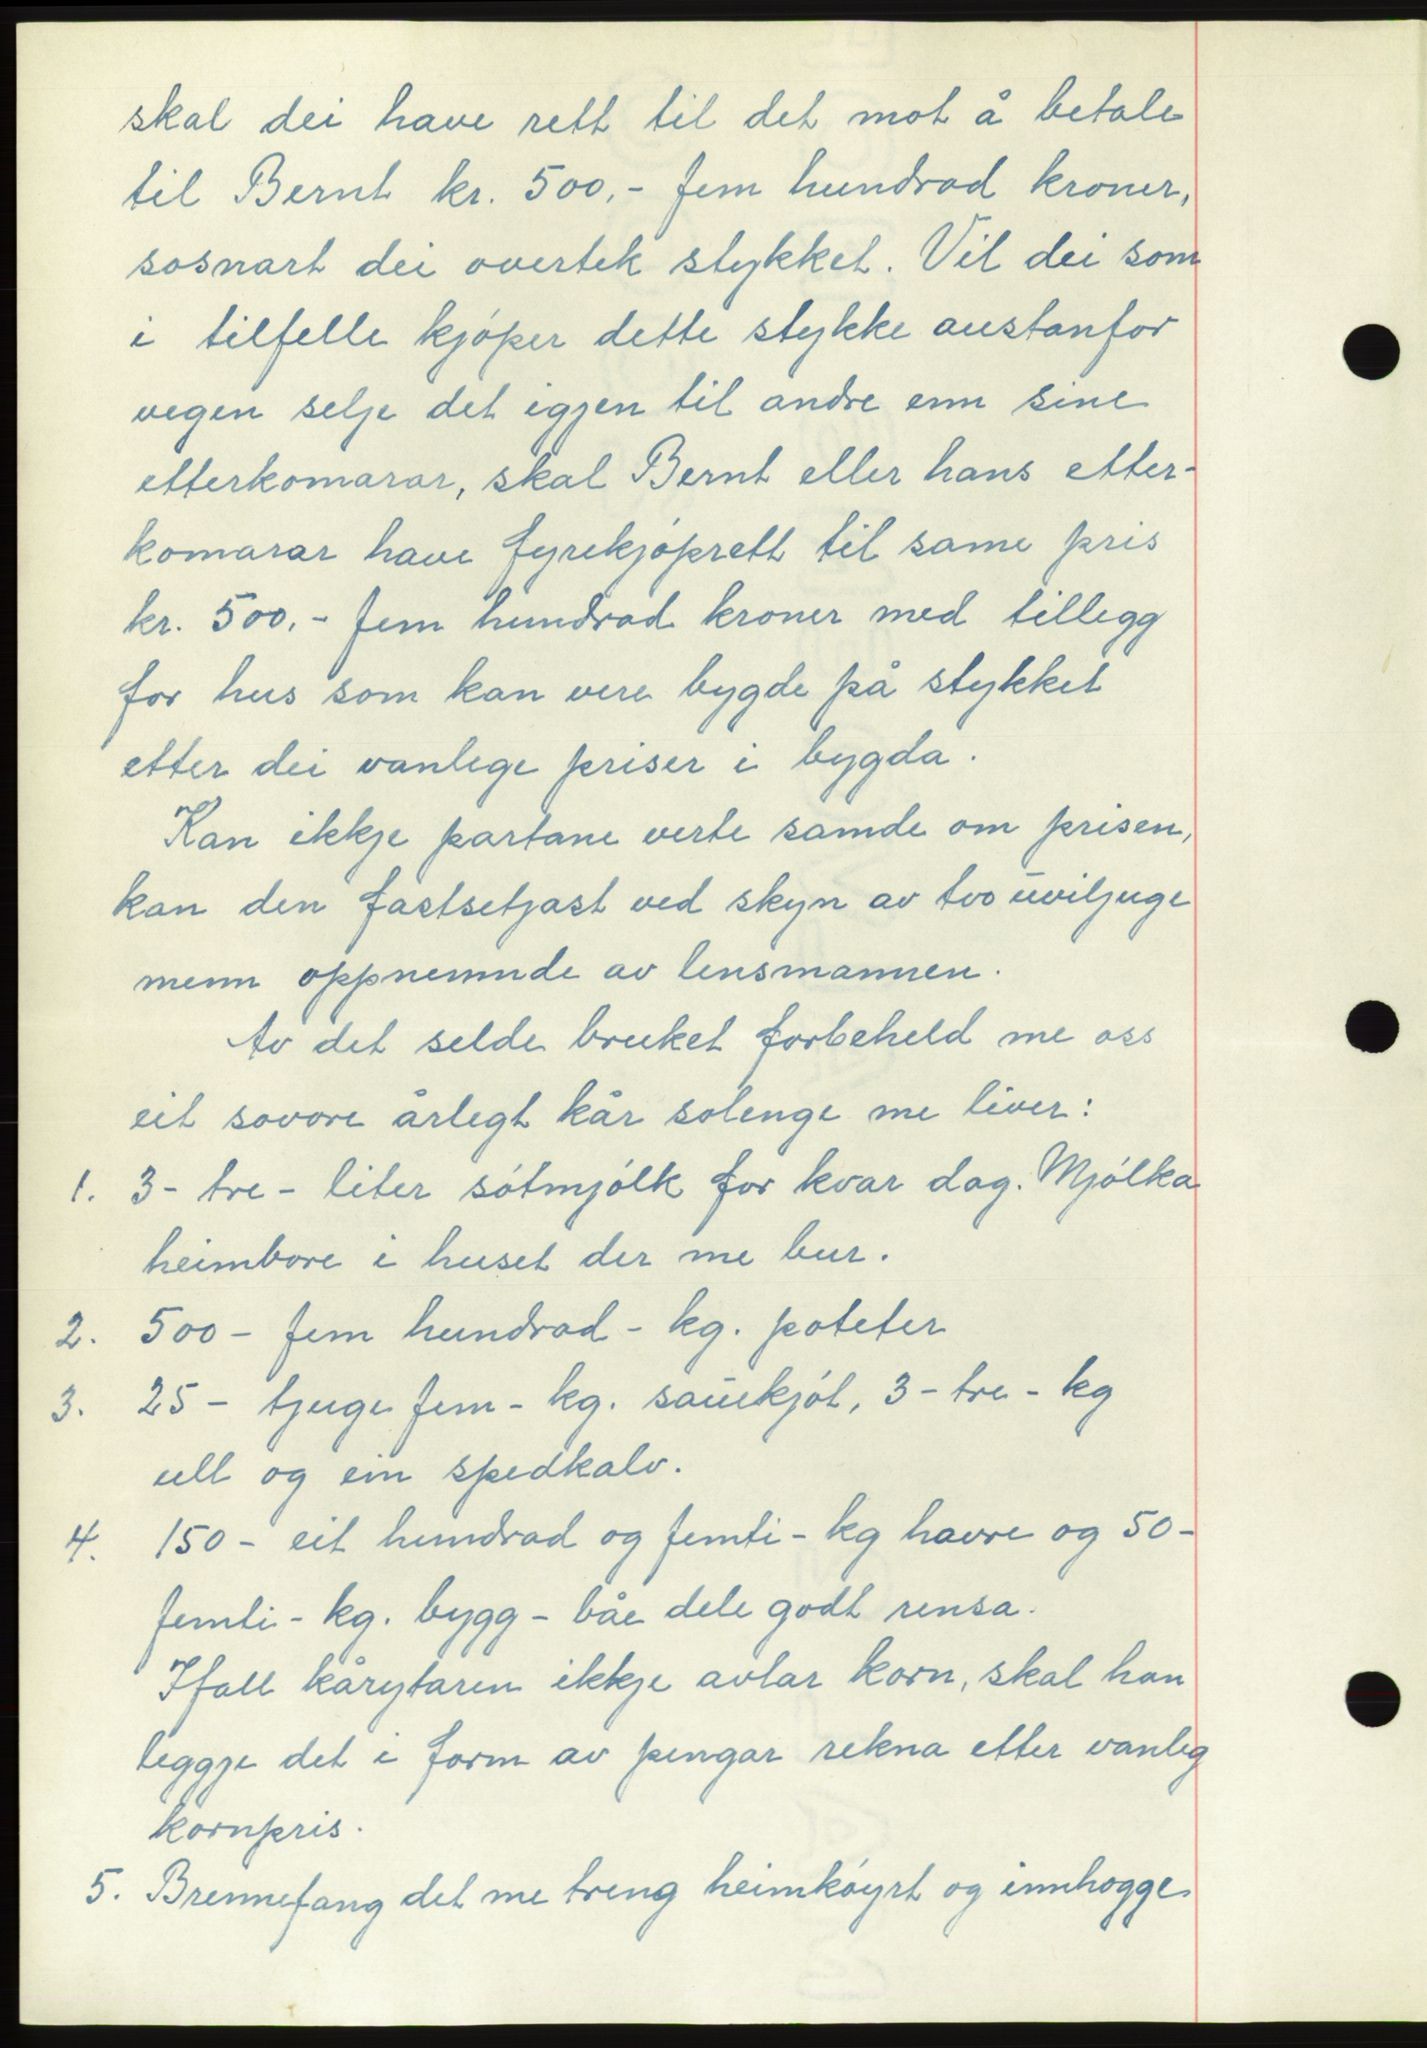 skal dei have rett til det mot å betale
til Bernt kr. 500.- fem hundrad kroner,
sosnart dei overtek stykket. Vil dei som
i tilfelle kjóper dette stykke austanfor
vegen selje det igjen til andre enn sine
etterkomarar, skal Bernt eller hans etter-
komarar have fyrekjóprett til same pris
kr. 500.- fem hundrad kroner med tillegg
for hus som kan vere bygde på stykket
etter dei vanlege priser i bygda.
Kan ikkje partane verte samde om prisen,
kan den fastsetjast ved skyn av tvo uviljuge
menn oppnemnde av lensmannen.
Av det selde bruket forbeheld me oss
eit sovore årlegt kår solenge me liver:
1. 3- tre - liter sótmjólk for kvar dag. Mjólka
heimbore i huset der me bur.
2. 500 - fem hundrad - kg. poteter
3. 25 - tjuge fem - kg. sauekjót, 3 - tre - kg
ull og ein spedkalv.
4. 150 - eit hundrad og femti - kg havre og 50 -
femti - kg. bygg - båe dele godt rensa.
Ifall kårytaren ikkje avlar korn, skal han
leggje det i form av pengar rekna etter vanleg
kornpris.
5. Brennefang det me treng heimkóyrt og innhogge